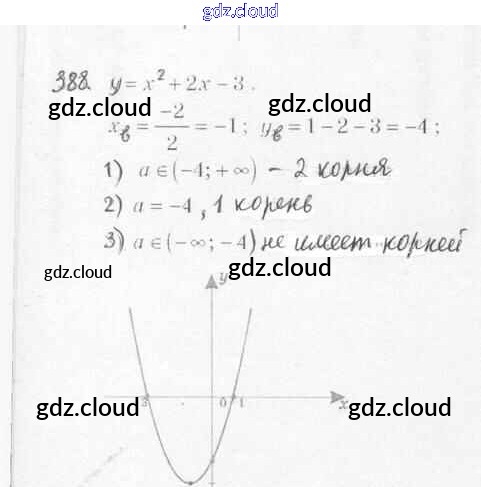 gdz.cloud
388. y = x² + 2x - 3.
gdz.cloud gdz.cloud
x_в = -2/2 = -1; y_в = 1 - 2 - 3 = -4;
1) a ∈ (-4; +∞) - 2 корня
2) a = -4, 1 корень
3) a ∈ (-∞; -4) не имеет корней
gdz.cloud gdz.cloud
y
3 0 1 x
gdz.cloud gdz.cloud